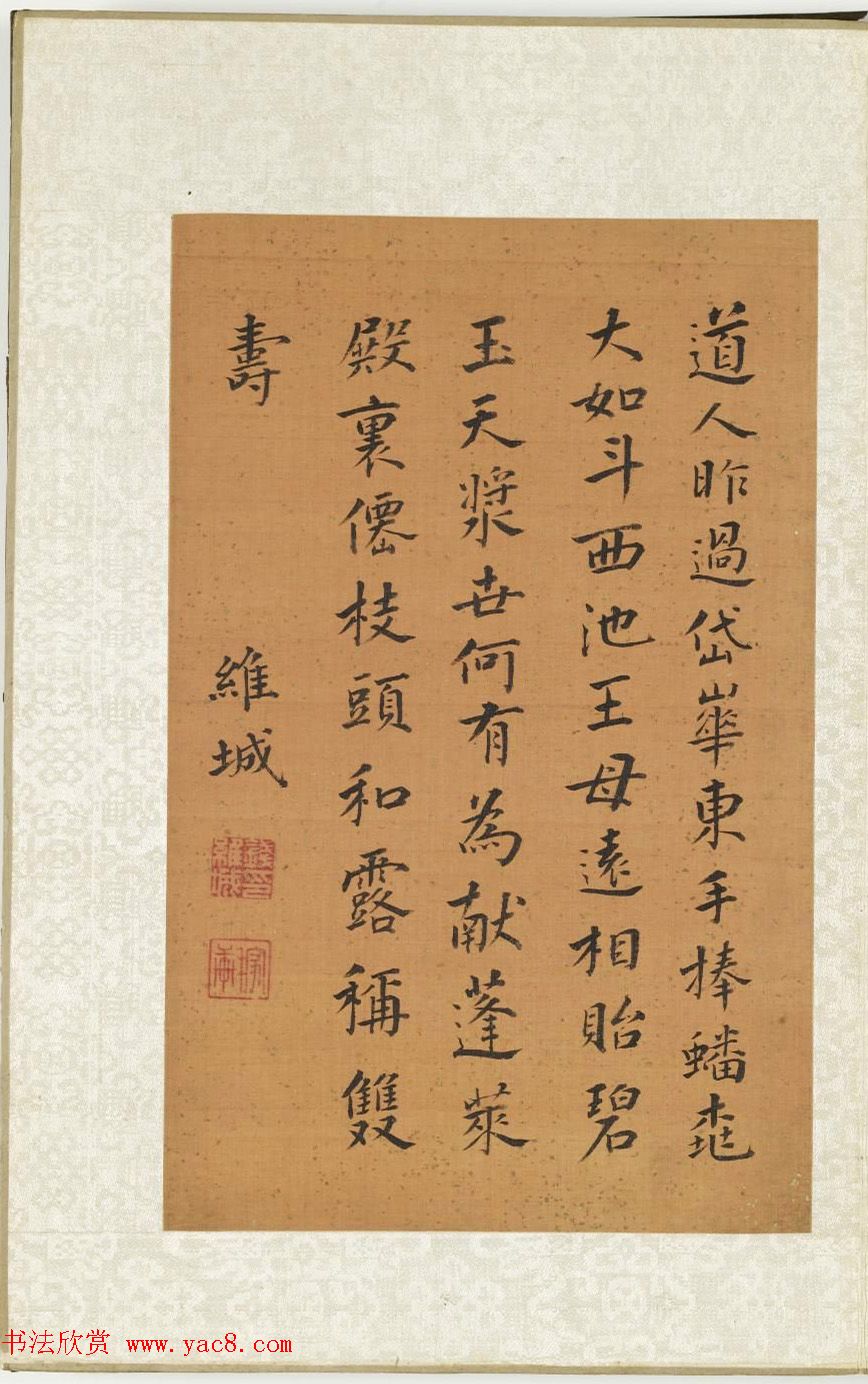 道人昨過岱峯東手捧蟠桃
大如斗西池王母遠相貽碧
玉天漿世何有為献蓬萊
殿裏僊枝頭和露稱雙
壽
維城
书法欣赏 www.yac8.com